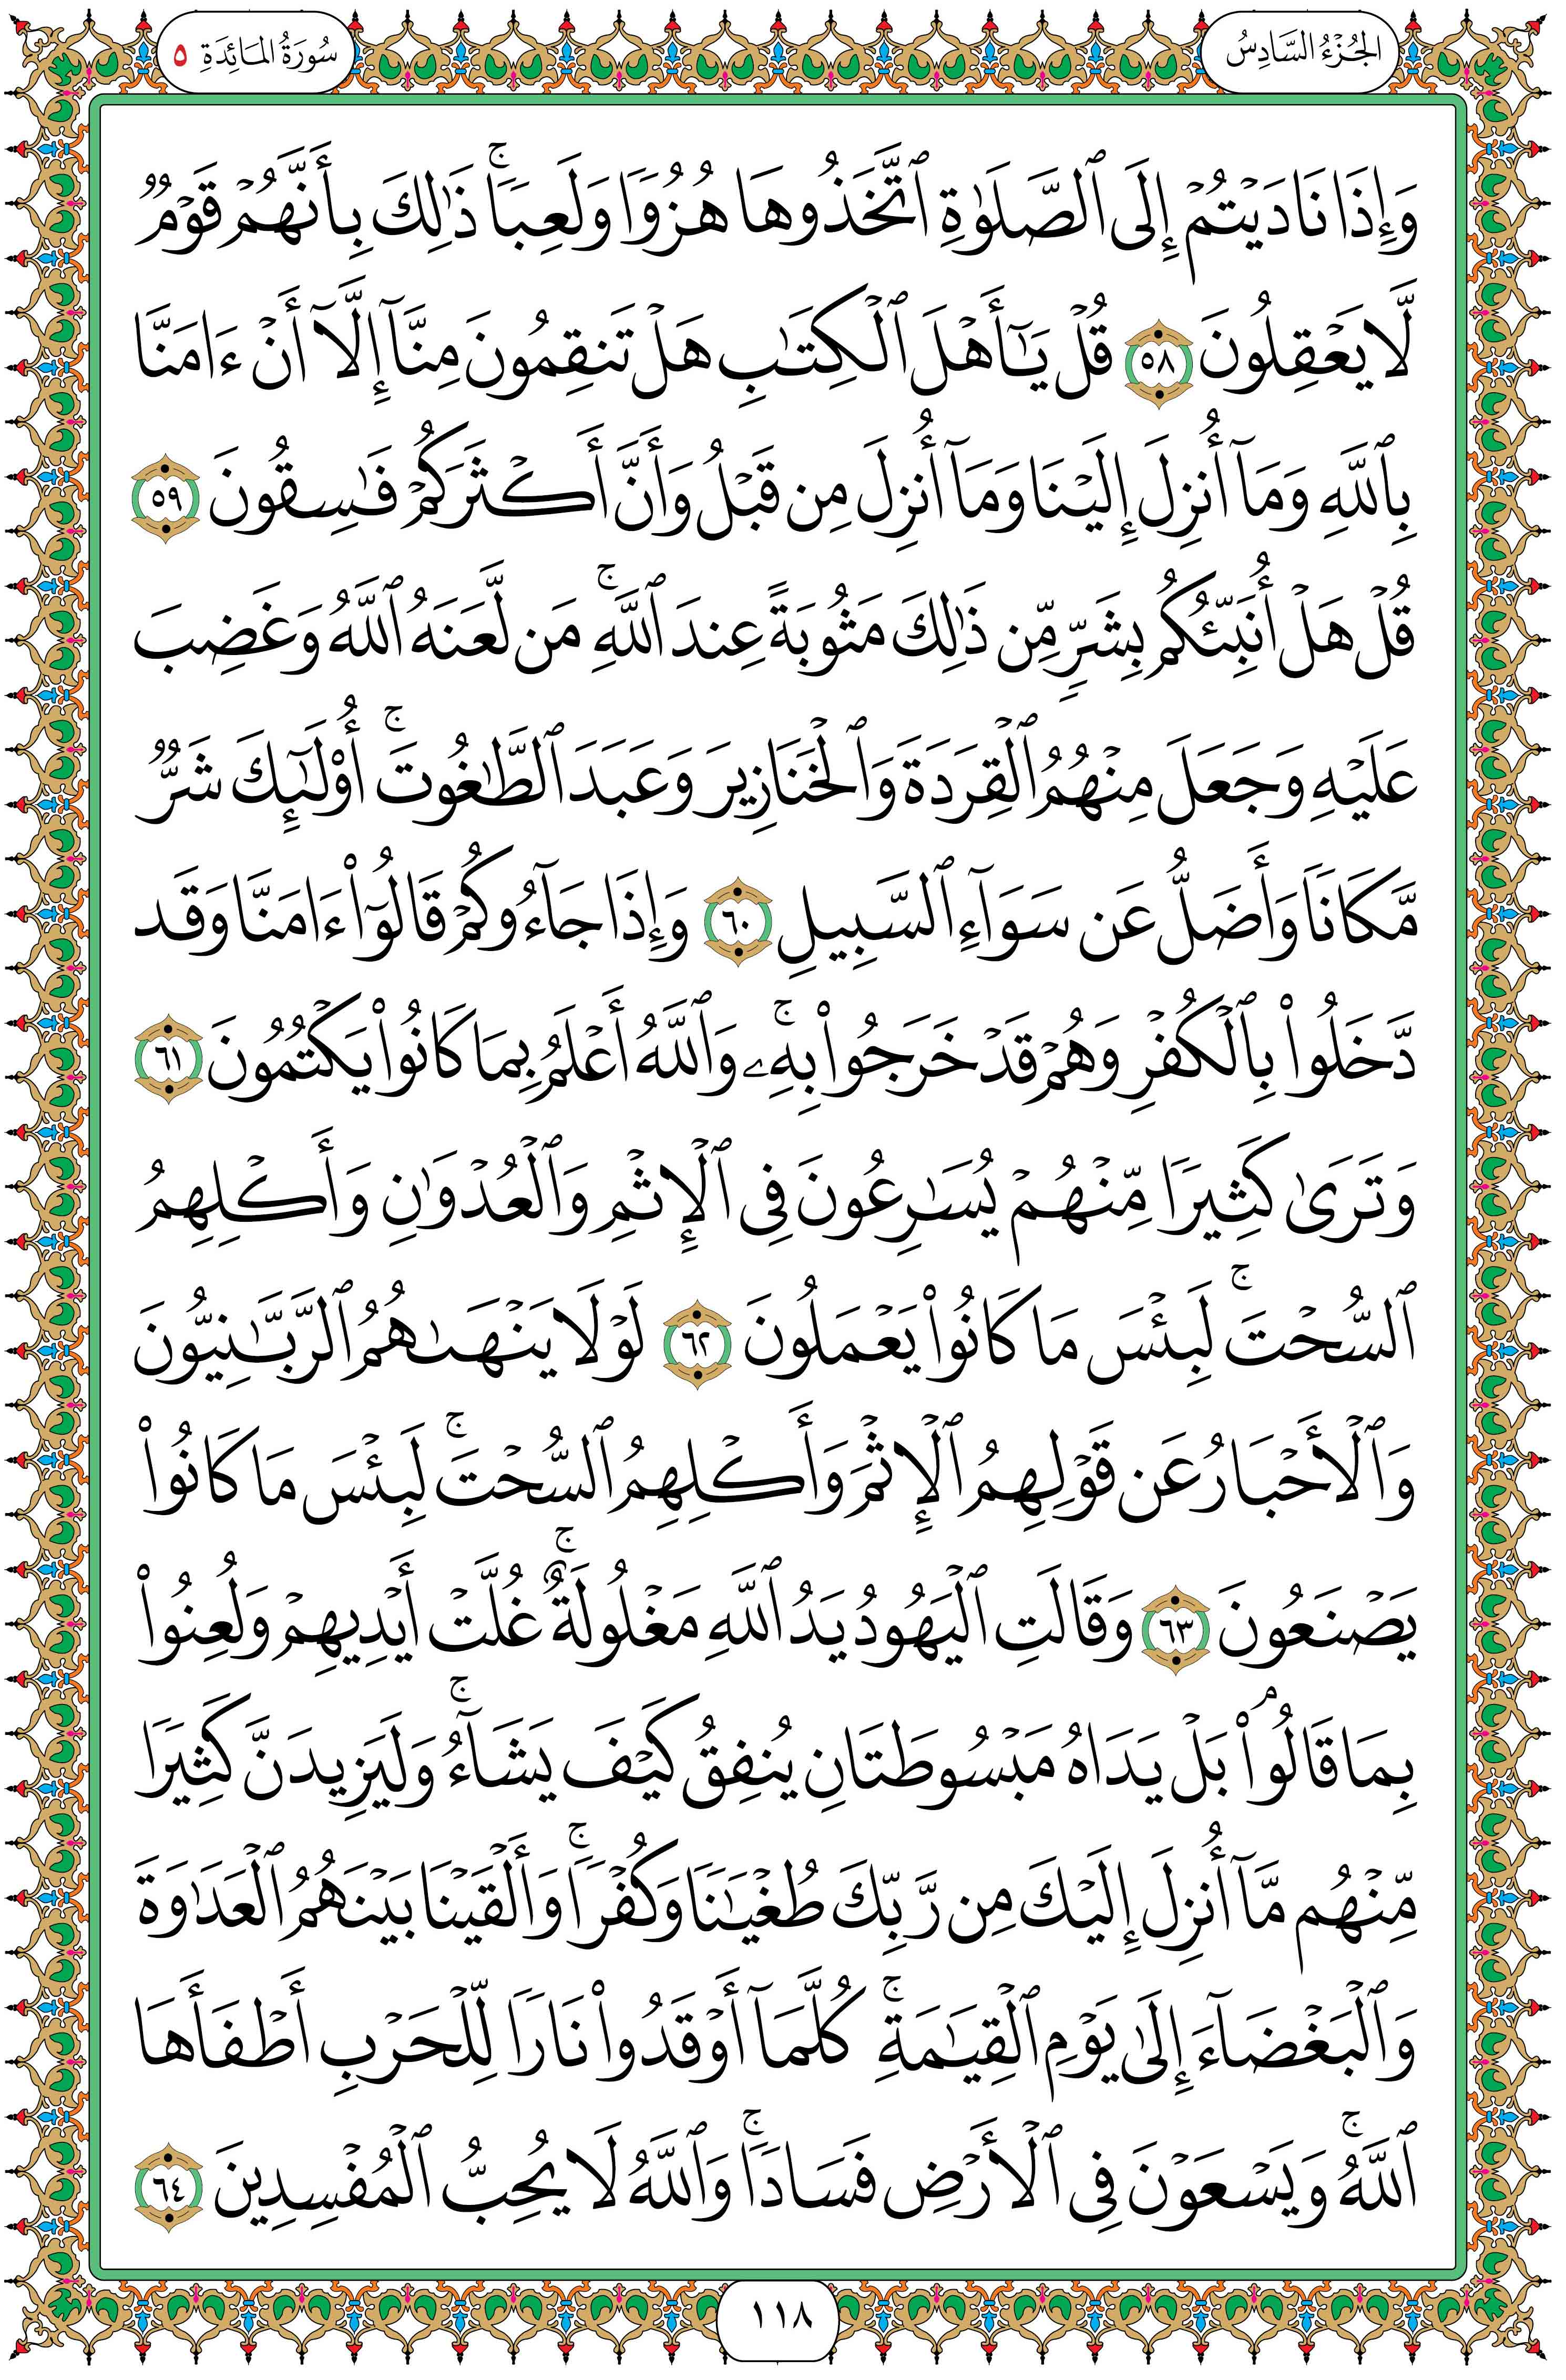 الجُزْءُ السَّادِسُ
سُورَةُ المَائِدَةِ ٥
وَإِذَا نَادَيْتُمْ إِلَى ٱلصَّلَوٰةِ ٱتَّخَذُوهَا هُزُوًا وَلَعِبًا ۚ ذَٰلِكَ بِأَنَّهُمْ قَوْمٌ
لَّا يَعْقِلُونَ ٥٨ قُلْ يَٰٓأَهْلَ ٱلْكِتَٰبِ هَلْ تَنقِمُونَ مِنَّآ إِلَّآ أَنْ ءَامَنَّا
بِٱللَّهِ وَمَآ أُنزِلَ إِلَيْنَا وَمَآ أُنزِلَ مِن قَبْلُ وَأَنَّ أَكْثَرَكُمْ فَٰسِقُونَ ٥٩
قُلْ هَلْ أُنَبِّئُكُم بِشَرٍّ مِّن ذَٰلِكَ مَثُوبَةً عِندَ ٱللَّهِ ۚ مَن لَّعَنَهُ ٱللَّهُ وَغَضِبَ
عَلَيْهِ وَجَعَلَ مِنْهُمُ ٱلْقِرَدَةَ وَٱلْخَنَازِيرَ وَعَبَدَ ٱلطَّٰغُوتَ ۚ أُو۟لَٰٓئِكَ شَرٌّ
مَّكَانًا وَأَضَلُّ عَن سَوَآءِ ٱلسَّبِيلِ ٦٠ وَإِذَا جَآءُوكُمْ قَالُوٓا۟ ءَامَنَّا وَقَد
دَّخَلُوا۟ بِٱلْكُفْرِ وَهُمْ قَدْ خَرَجُوا۟ بِهِۦ ۚ وَٱللَّهُ أَعْلَمُ بِمَا كَانُوا۟ يَكْتُمُونَ ٦١
وَتَرَىٰ كَثِيرًا مِّنْهُمْ يُسَٰرِعُونَ فِى ٱلْإِثْمِ وَٱلْعُدْوَٰنِ وَأَكْلِهِمُ
ٱلسُّحْتَ ۚ لَبِئْسَ مَا كَانُوا۟ يَعْمَلُونَ ٦٢ لَوْلَا يَنْهَىٰهُمُ ٱلرَّبَّٰنِيُّونَ
وَٱلْأَحْبَارُ عَن قَوْلِهِمُ ٱلْإِثْمَ وَأَكْلِهِمُ ٱلسُّحْتَ ۚ لَبِئْسَ مَا كَانُوا۟
يَصْنَعُونَ ٦٣ وَقَالَتِ ٱلْيَهُودُ يَدُ ٱللَّهِ مَغْلُولَةٌ ۚ غُلَّتْ أَيْدِيهِمْ وَلُعِنُوا۟
بِمَا قَالُوا۟ ۘ بَلْ يَدَاهُ مَبْسُوطَتَانِ يُنفِقُ كَيْفَ يَشَآءُ ۚ وَلَيَزِيدَنَّ كَثِيرًا
مِّنْهُم مَّآ أُنزِلَ إِلَيْكَ مِن رَّبِّكَ طُغْيَٰنًا وَكُفْرًا ۚ وَأَلْقَيْنَا بَيْنَهُمُ ٱلْعَدَٰوَةَ
وَٱلْبَغْضَآءَ إِلَىٰ يَوْمِ ٱلْقِيَٰمَةِ ۚ كُلَّمَآ أَوْقَدُوا۟ نَارًا لِّلْحَرْبِ أَطْفَأَهَا
ٱللَّهُ ۚ وَيَسْعَوْنَ فِى ٱلْأَرْضِ فَسَادًا ۚ وَٱللَّهُ لَا يُحِبُّ ٱلْمُفْسِدِينَ ٦٤
١١٨